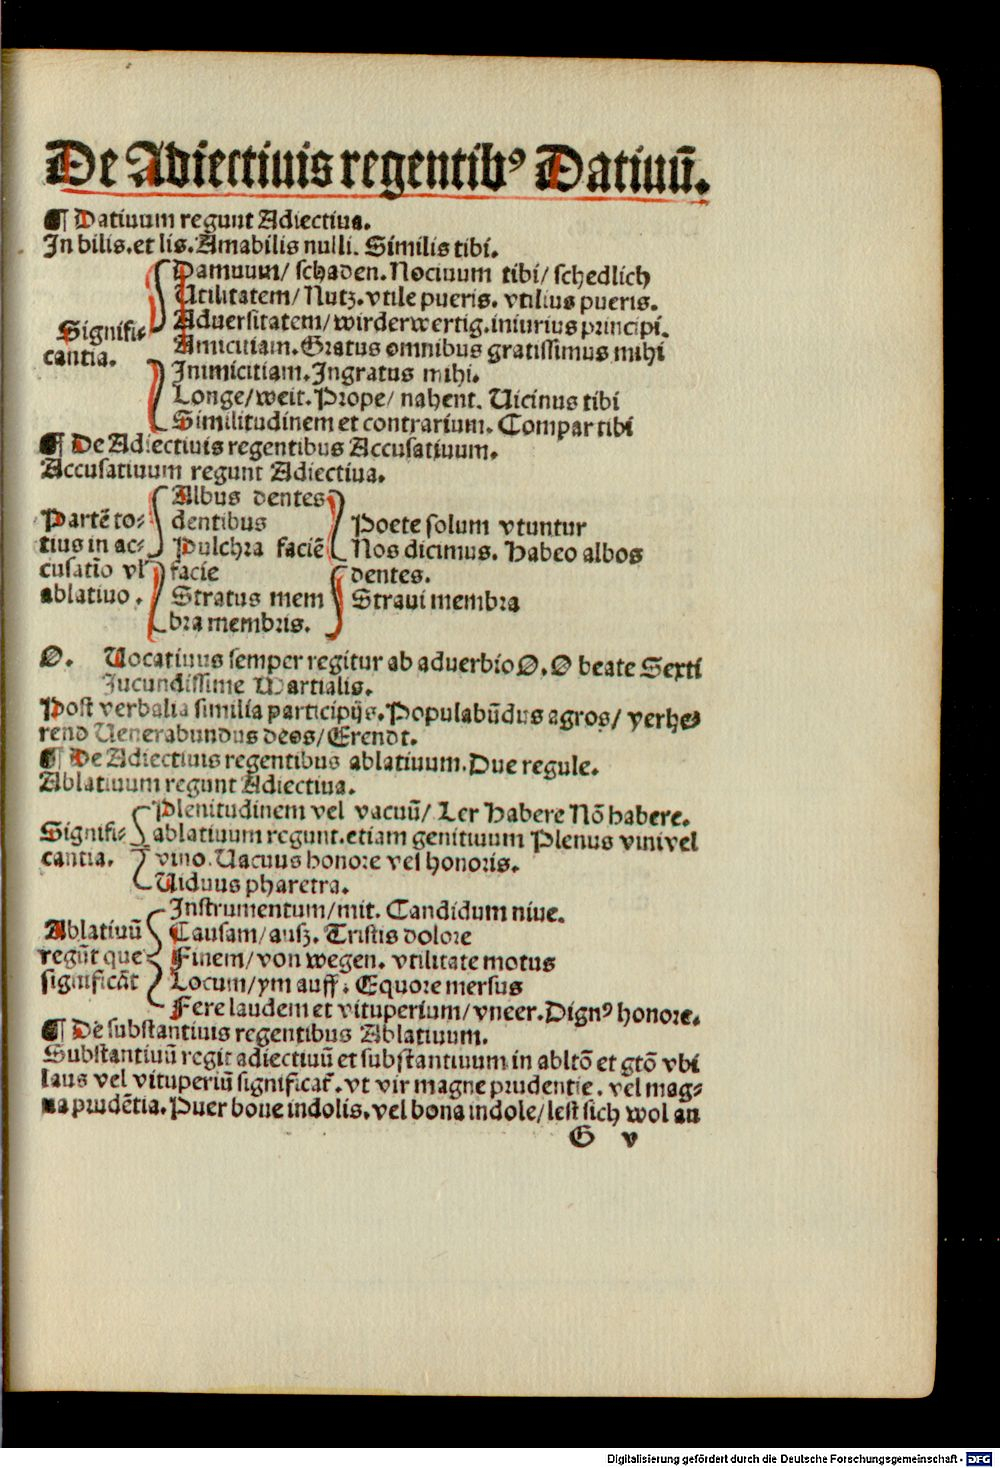 De Adiectiuis regentibꝰ Datiuū.
¶ Datiuum regunt Adiectiua.
In bilis.et lis.Amabilis nulli. Similis tibi.
Damnum/ schaden.Nociuum tibi/ schedlich
Utilitatem/ Nutz. vtile pueris. vtilius pueris.
Signifi-
cantia.
Aduersitatem/ wirderwertig.iniurius principi.
Amicitiam.Gratus omnibus gratissimus mihi
Inimicitiam.Ingratus mihi.
Longe/weit.Prope/ nahent. Uicinus tibi
Similitudinem et contrarium. Compar tibi
¶ De Adiectiuis regentibus Accusatiuum.
Accusatiuum regunt Adiectiua.
Partē to-
tius in ac-
cusatio vl
ablatiuo.
Albus dentes
dentibus
Pulchra faciē
facie
Stratus mem
bra membris.
Poete solum vtuntur
Nos dicimus. Habeo albos
dentes.
Straui membra
O. Uocatiuus semper regitur ab aduerbio O.O beate Sexti
Iucundissime Martialis.
Post verbalia similia participijs.Populabūdus agros/ verhe
rend Uenerabundus deos/ Erendt.
¶ De Adiectiuis regentibus ablatiuum.Due regule.
Ablatiuum regunt Adiectiua.
Signifi-
cantia.
Plenitudinem vel vacuū/ Ler Habere Nō habere.
ablatiuum regunt.etiam genitiuum Plenus vini vel
vino.Uacuus honore vel honoris.
Uiduus pharetra.
Ablatiuū
regūt que
significāt
Instrumentum/mit. Candidum niue.
Causam/ausz. Tristis dolore
Finem/von wegen. vtilitate motus
Locum/ym auff. Equore mersus
Fere laudem et vituperium/vneer.Dignꝰ honore.
¶ De substantiuis regentibus Ablatiuum.
Substantiuū regit adiectiuū et substantiuum in abltō et gtō vbi
laus vel vituperiū significat̄. vt vir magne prudentie. vel mag-
na prudētia.Puer bone indolis.vel bona indole/lest sich wol an
G v
Digitalisierung gefördert durch die Deutsche Forschungsgemeinschaft - DFG